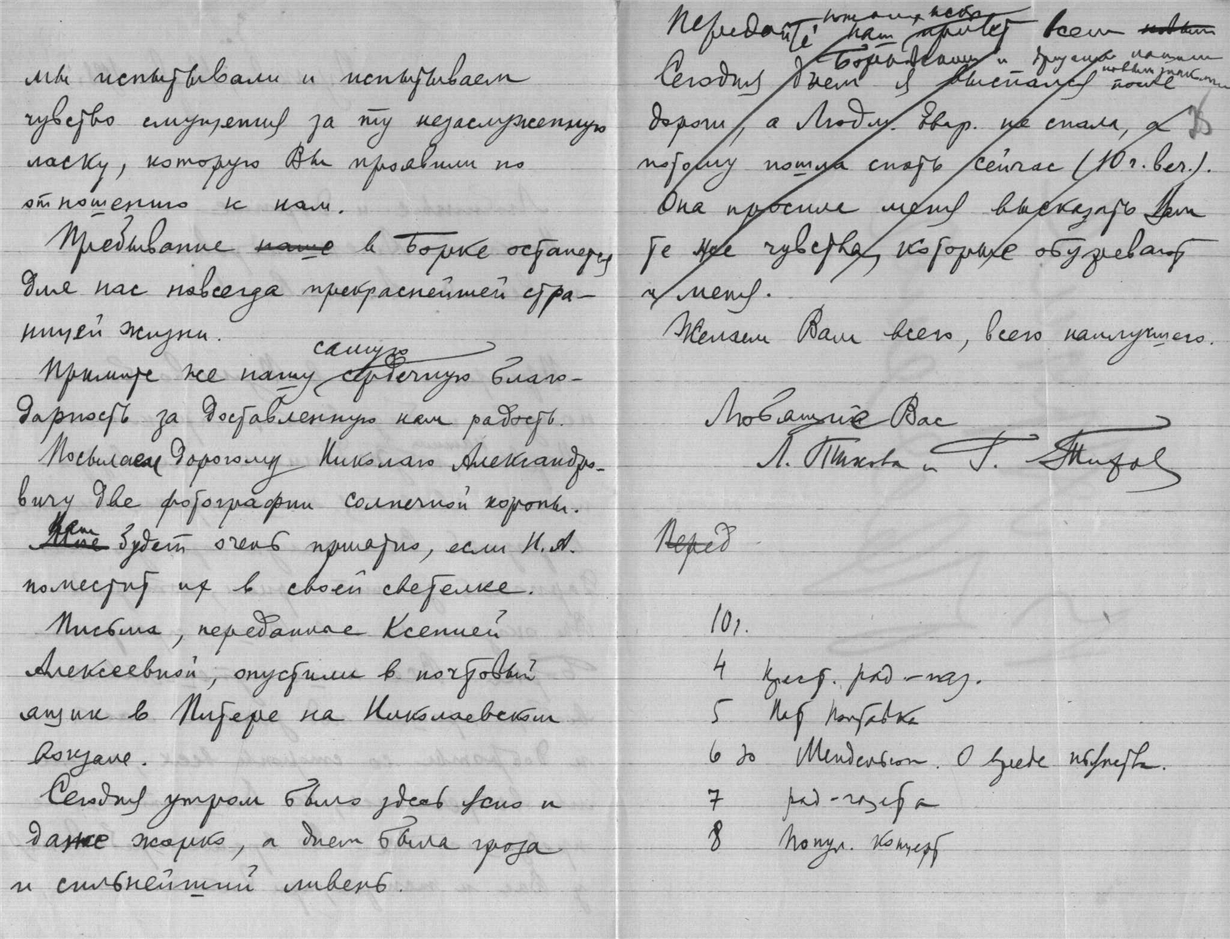 мы испытывали и испытываем
чувство смущения за ту незаслуженную
ласку, которую Вы проявили по
отношению к нам.
Пребывание наше в Борке останется
для нас навсегда прекраснейшей стра-
ницей жизни.
самую
Примите же нашу сердечную благо-
дарность за доставленную нам радость.
Посылаем дорогому Николаю Александро-
вичу две фотографии солнечной короны.
Нам
Мне будет очень приятно, если Н.А.
поместит их в своей светелке.
Письма, переданные Ксенией
Алексеевной, опустили в почтовый
ящик в Питере на Николаевском
вокзале.
Сегодня утром было здесь ясно и
даже жарко, а днем была гроза
и сильнейший ливень.
Передайте наш привет всем новым
Борковским и друзьям нашим
новым знакомым
Сегодня днем я выспался после
дороги, а Людм. Евгр. не спала, а
потому пошла спать сейчас (10 г. веч.).
Она просила меня высказать Вам
те же чувства, которые обуревают
и меня.
Желаем Вам всего, всего наилучшего.
Любящие Вас
Л. и Г. Тихов
Перед
10 г.
4 крест. рад-газ.
5
6 до Мендельсон. О вреде пьянства.
7 рад-газета
8 Попул. концерт